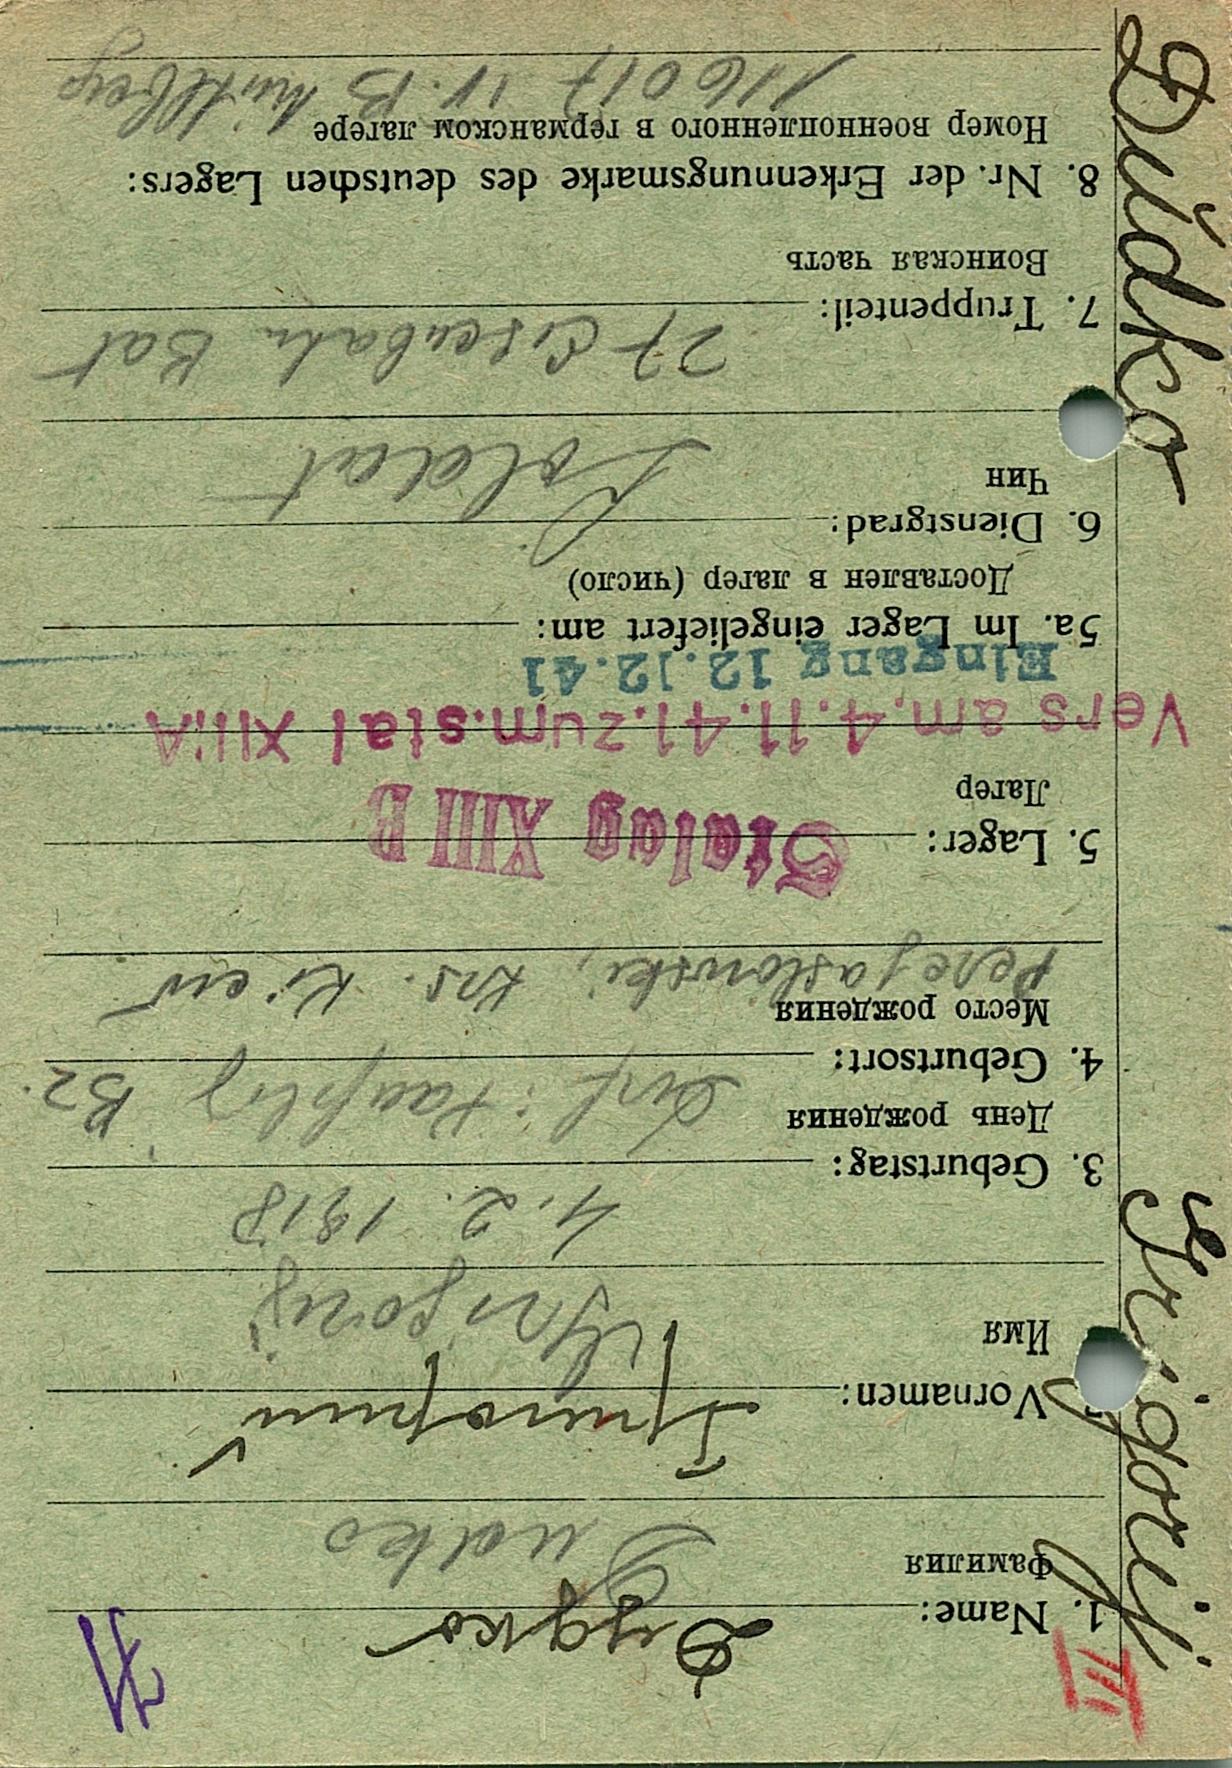 III
Dudko Grigorij
1. Name: Дудко
Фамилия Dudko
Vornamen: Григорий
Имя Grigorij
4. 2. 1918
3. Geburtstag:
День рождения Dorf: Bz.
4. Geburtsort:
Место рождения
Perejaslowski, Krs. Kiew
5. Lager: Stalag XIII B
Лагер
Vers am.4.11.41.zum.stal XII:A
Eingang 12.12.41
5a. Im Lager eingeliefert am:
Доставлен в лагер (число)
6. Dienstgrad: Soldat
Чин
27 Eisenbahn Bat
7. Truppenteil:
Воинская часть
8. Nr. der Erkennungsmarke des deutschen Lagers:
Номер военнопленного в германском лагере
116017 IV. B Mühlberg